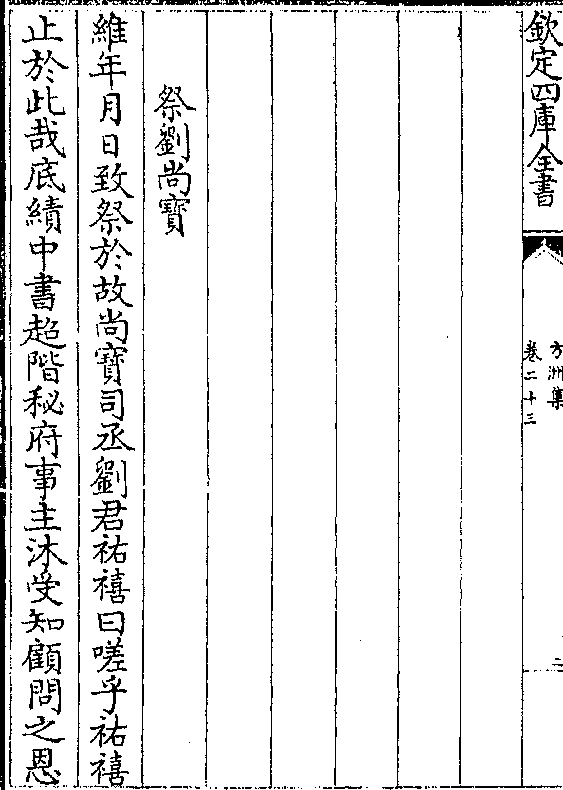 欽定四庫全書
方洲集
卷二十三
二
祭劉尚寶
維年月日致祭於故尚寶司丞劉君祐禧曰嗟乎祐禧
止於此哉底績中書超階秘府事主沐受知顧問之恩